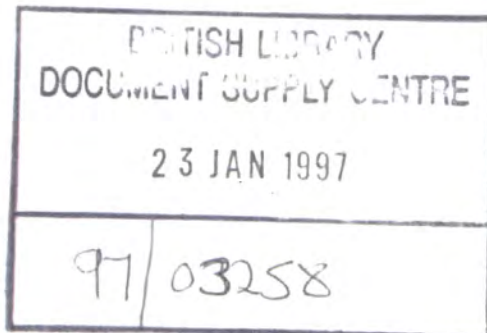 BRITISH LIBRARY
DOCUMENT SUPPLY CENTRE
23 JAN 1997
97/03258